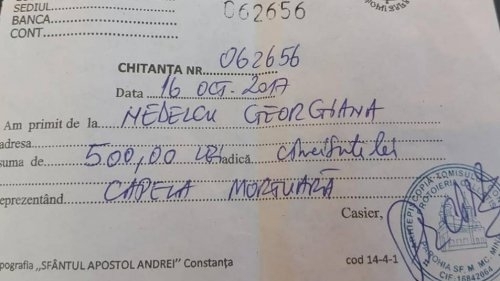 SEDIUL
BANCA
CONT
062656
CHITANȚA NR. 062656
Data 16 OCT. 2017
Am primit de la NEDELCU GEORGIANA
adresa
suma de 500,00 LEI adică cincisute lei
eprezentând CAPELA MORTUARĂ
Casier,
pografia „SFÂNTUL APOSTOL ANDREI" Constanța
cod 14-4-1